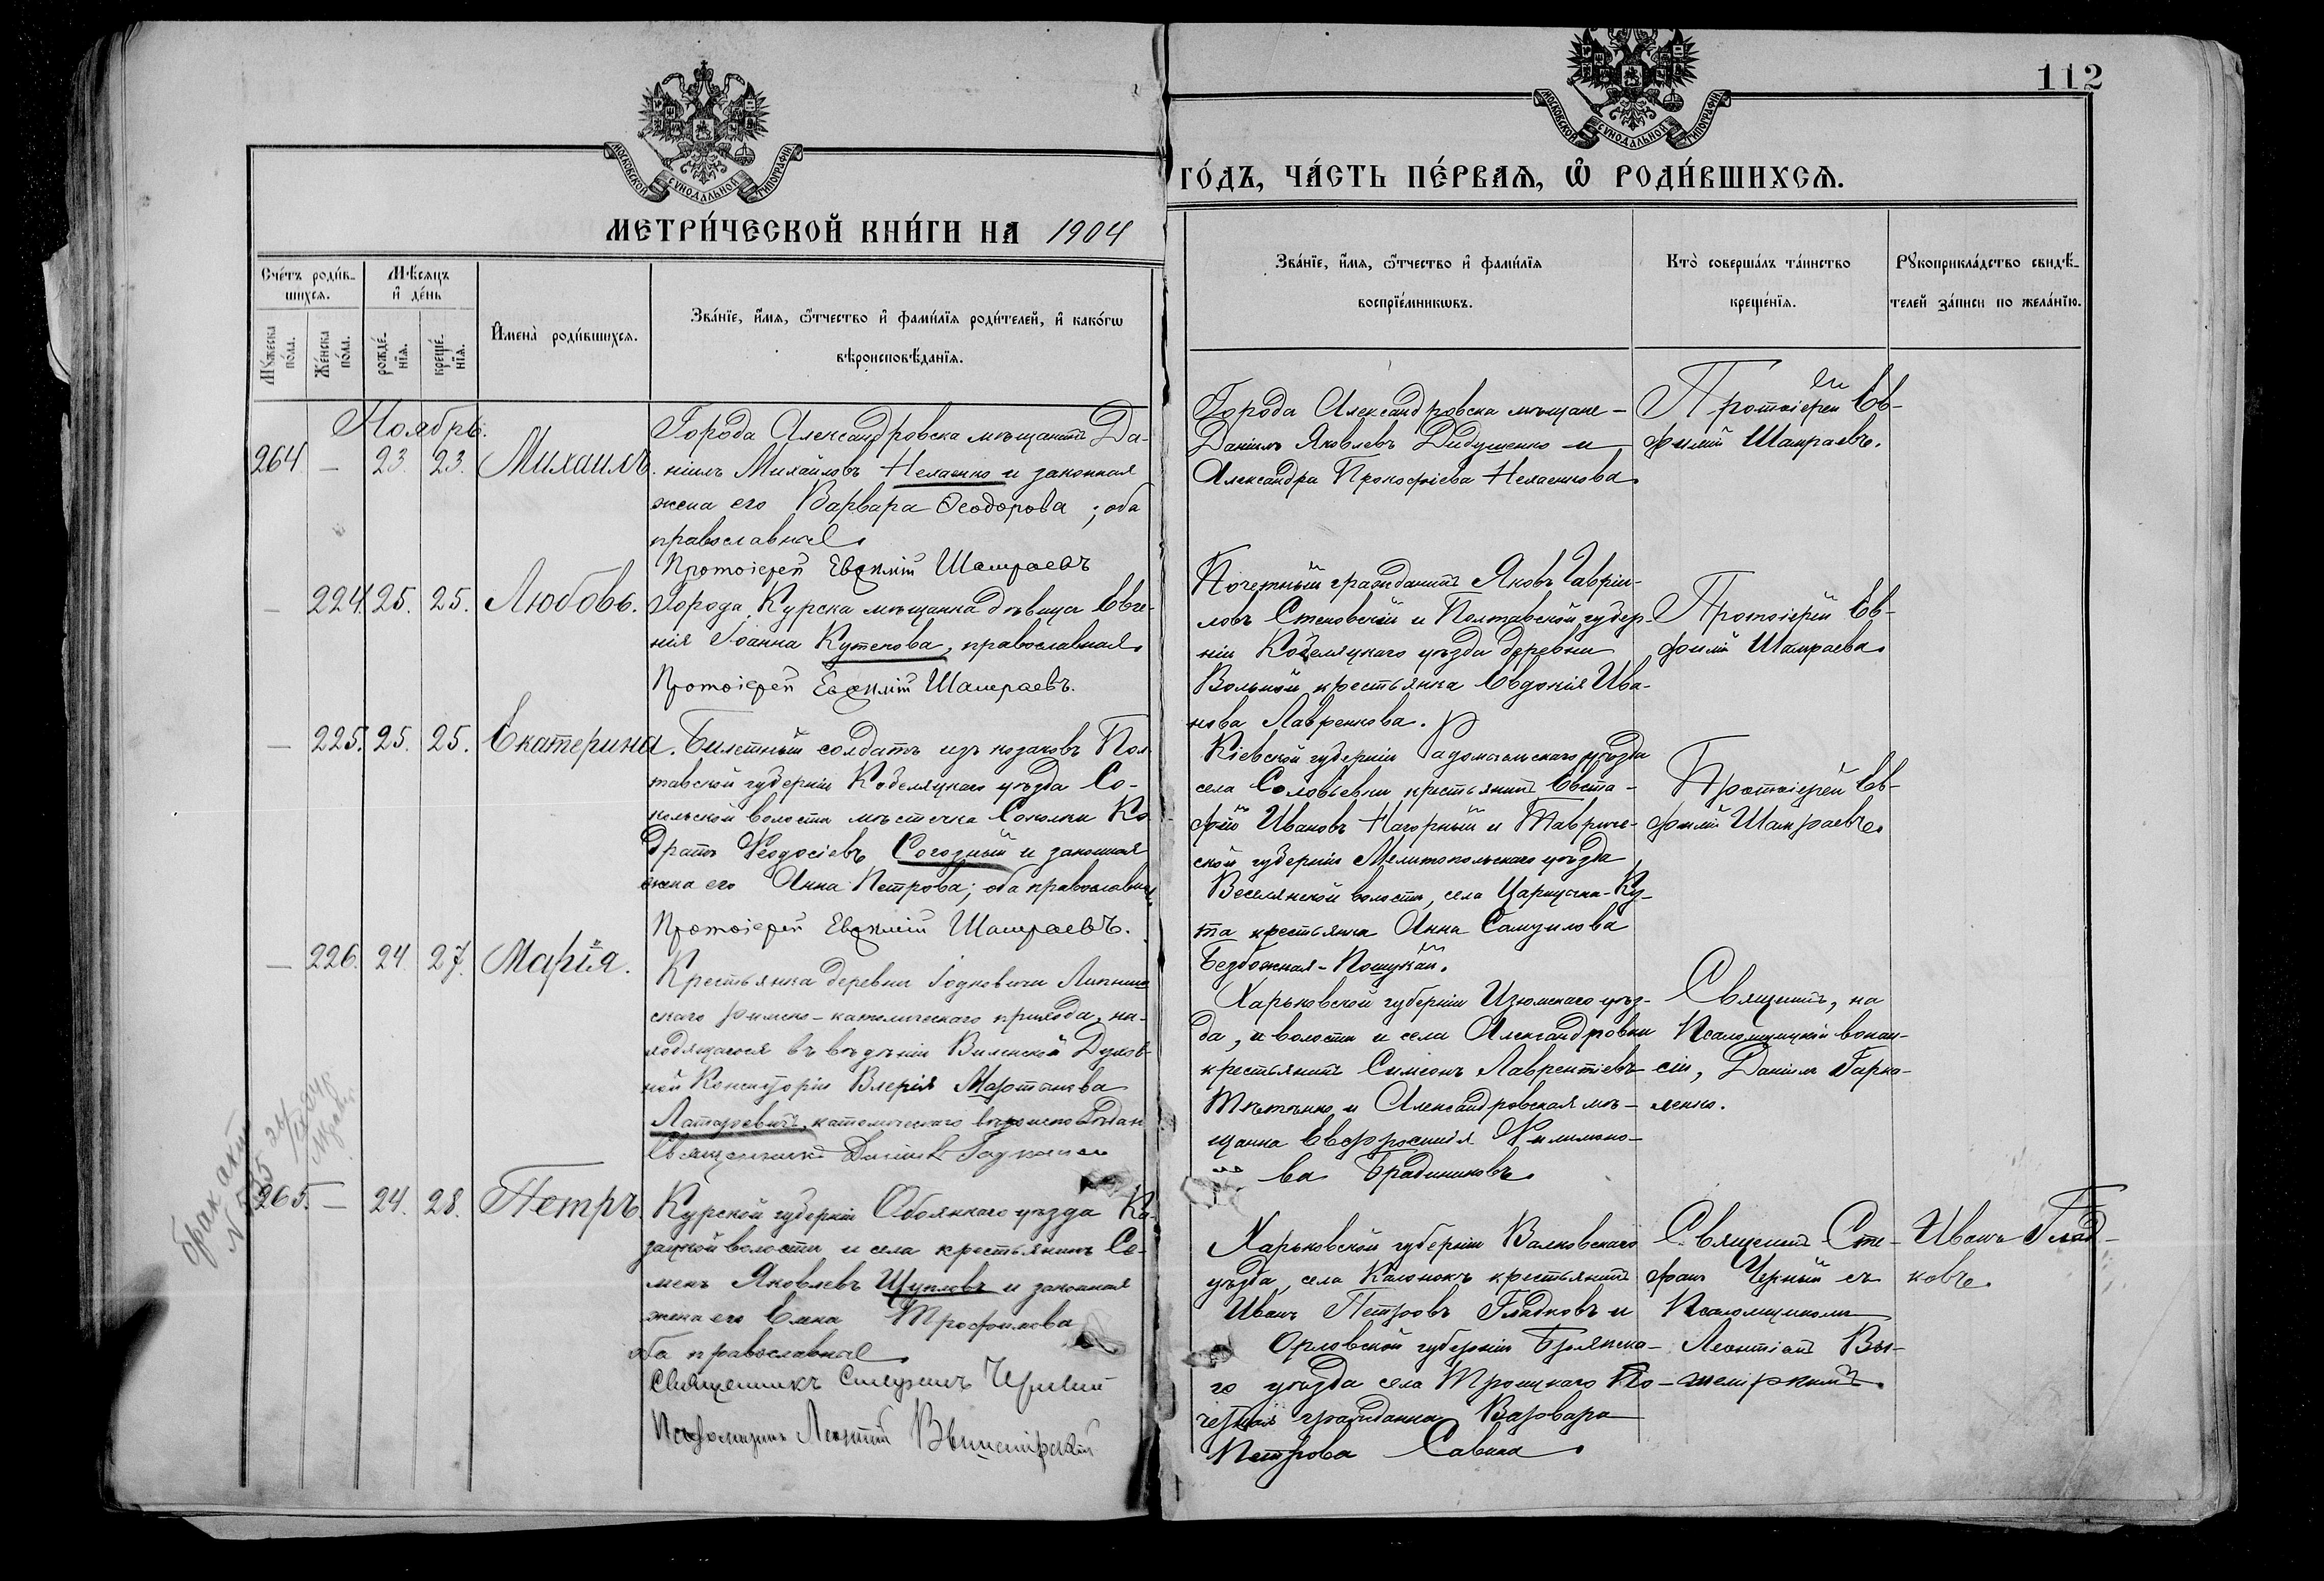 112
МОСКОВСКОЙ СѴНОДАЛЬНОЙ ТИПОГРАФІИ
МЕТРИ́ЧЕСКОЙ КНИ́ГИ НА 1904
Сче́тъ роди́в-
шихсѧ.
Мѣ́сѧцъ
и҆ де́нь
Мꙋ́жеска по́ла.
Же́нска по́ла.
рожде́-
нїѧ.
креще́-
нїѧ.
И҆мена̀ роди́вшихсѧ.
Зва́нїе, и҆́мѧ, ѻ҆́тчество и҆ фами́лїѧ роди́телей, и҆ како́гѡ
вѣроисповѣ́данїѧ.
Ноябрь.
264 — 23. 23. Михаилъ.
Города Александровска мѣщанинъ Да-
ніилъ Михайловъ Нелаенко и законная
жена его Варвара Ѳеодорова; оба
православные
Протоіерей Евѳимій Шамраевъ
— 224. 25. 25. Любовь.
Города Курска мѣщанка дѣвица Евге-
нія Іоанна Кутепова, православная
Протоіерей Евѳимій Шамраевъ.
— 225. 25. 25. Екатерина.
Билетный солдатъ изъ козаковъ Пол-
тавской губерніи Кобелякскаго уѣзда Со-
кольской волости мѣстечка Соколки Ко
дратъ Ѳеодосіевъ и законная
жена его Анна Петрова; оба православные
Протоіерей Евѳимій Шамраевъ.
— 226. 24 27. Марія.
Крестьянка деревни
скаго римско-католическаго прихода, на-
ходящагося въ вѣдѣніи Виленской Духов-
ной Консисторіи Мартинова
католическаго вѣроисповѣдан
Священникъ Даніилъ
265. — 24. 28. Петръ.
Курской губерніи Обоянскаго уѣзда Ка-
зацкой волости и села крестьянинъ Се-
менъ Яковлевъ Щупловъ и законная
жена его Трофимова
оба православные
Священникъ Стефанъ Черный
Псаломщикъ Леонтій
брак акт
ГО́ДЪ, ЧА́СТЬ ПЕ́РВАѦ, Ѡ҆ РОДИ́ВШИХСѦ.
МОСКОВСКОЙ СѴНОДАЛЬНОЙ ТИПОГРАФІИ
Зва́нїе, и҆́мѧ, ѻ҆́тчество и҆ фами́лїѧ
воспрїе́мникѡвъ.
Кто̀ соверша́лъ та́инство
креще́нїѧ.
Рꙋкоприкла́дство свидѣ́-
телей за́писи по жела́нїю.
Города Александровска мѣщане —
Даніилъ Яковлевъ Дидушенко и
Александра Прокофіева Нелаенкова
Протоіерей Ев-
фимій Шамраевъ.
Почетный гражданинъ Яковъ Гаврiи-
ловъ Стеновскій и Полтавской губер-
ніи Кобелякскаго уѣзда деревни
Вольной крестьянка Евдокія Ива-
нова Лавренкова.
Протоіерей Ев-
фимій Шамраевъ
Кіевской губерніи Радомысльскаго уѣзда
села Соловіевки крестьянинъ Евста-
фій Ивановъ Нагорный и Тавриче-
ской губерніи Мелитопольскаго уѣзда
Веселянской волости, села Царицына-Ку-
та крестьянка Анна Самуилова
Безбожная-Пошукай.
Протоіерей Ев-
фимій Шамраевъ
Харьковской губерніи Изюмскаго уѣз-
да, и волости и села Александровки
крестьянинъ Симеонъ Лаврентіевъ
и Александровская мѣ-
щанка Евфросинія Филимоно-
ва
Священ., на
Псаломщицкой вакан-
сіи, Даніилъ Гарка-
ленко.
Харьковской губерніи Валковскаго
уѣзда, села крестьянинъ
Иванъ Петровъ Гладковъ и
Орловской губерніи Брянска-
го уѣзда села Троицкаго По-
четная гражданка Варвара
Петрова Савина
Священ. Сте-
фанъ Черный съ
Псаломщикомъ
Иванъ Глад-
ковъ.